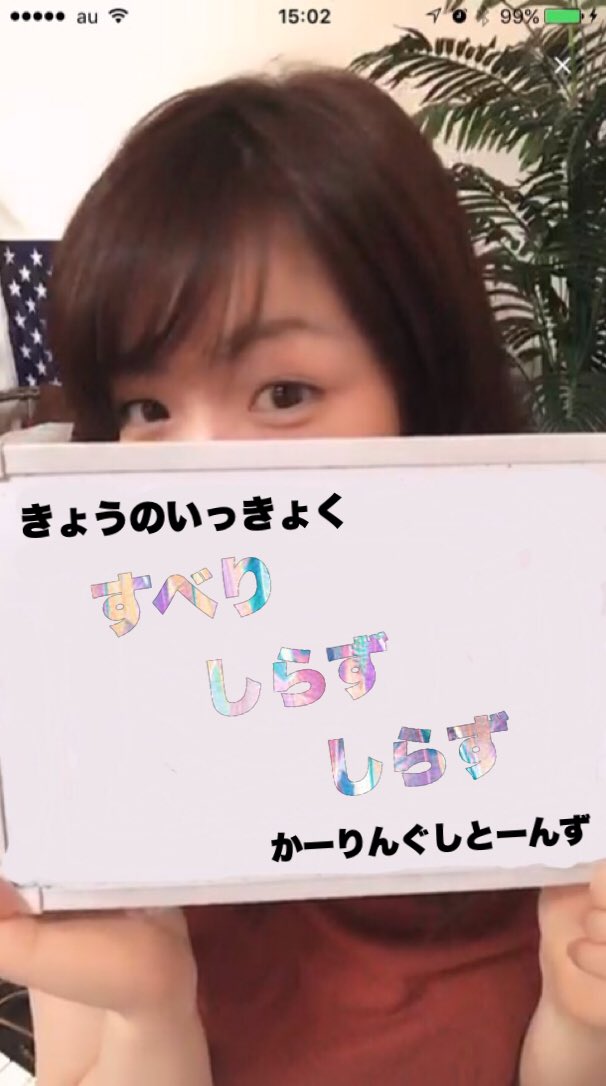 au 15:02 99%
きょうのいっきょく
すべり
しらず
しらず
かーりんぐしとーんず